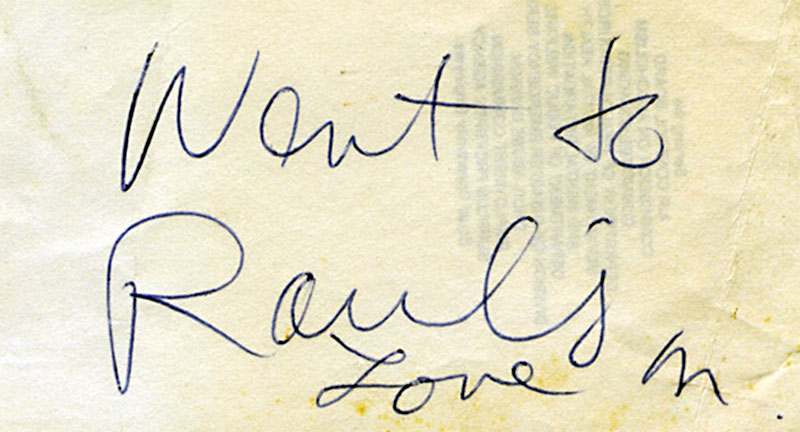 Went to
Raul's
Love M.